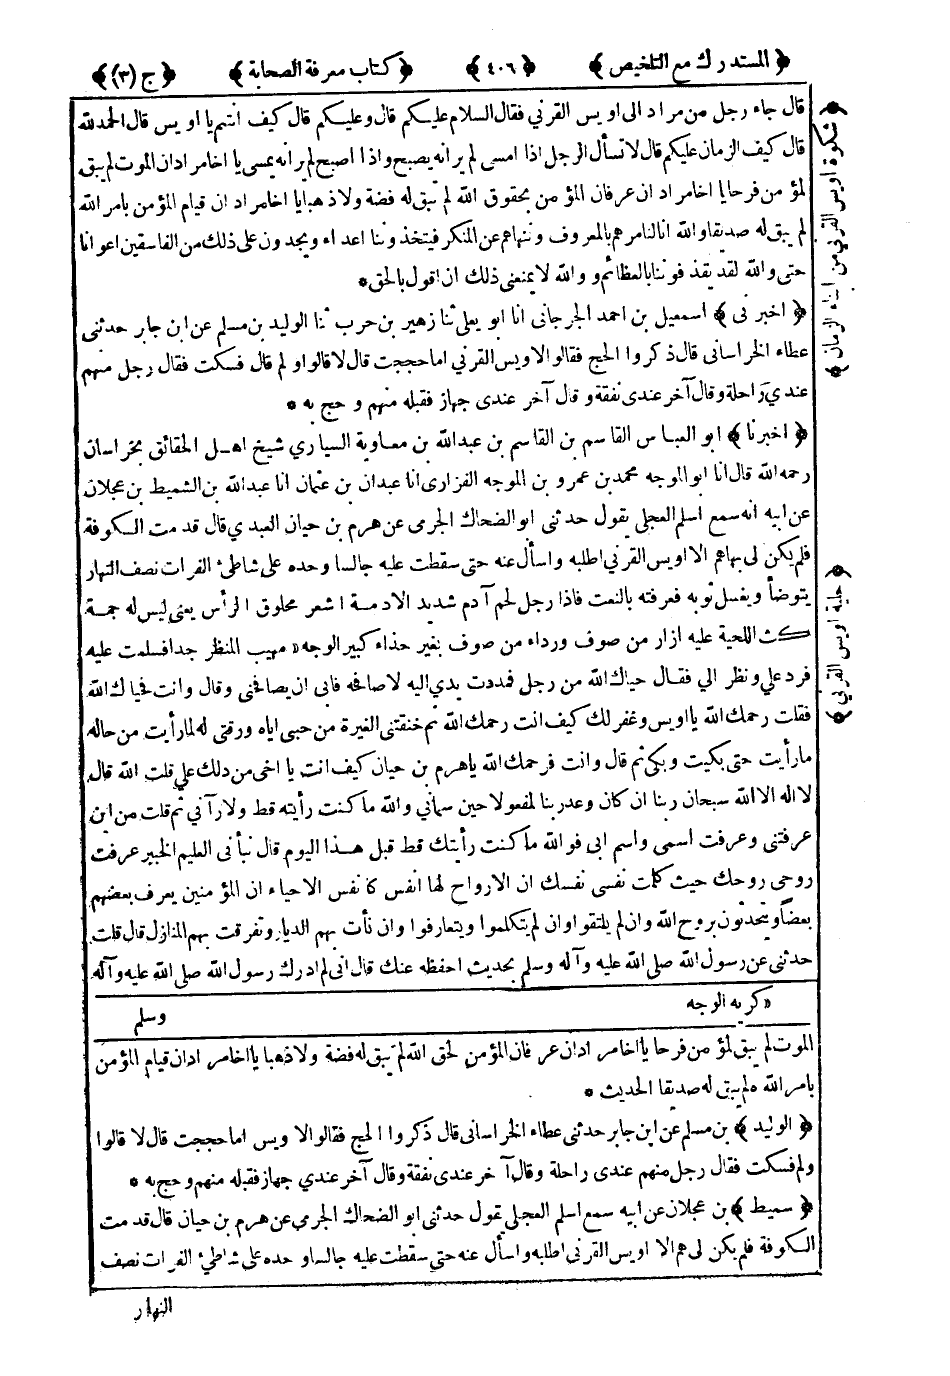 ﴿ المستدرك مع التلخيص ﴾ ﴿ ٤٠٦ ﴾ ﴿ كتاب معرفة الصحابة ﴾ ﴿ ج (٣) ﴾
قال جاء رجل من مراد الى اويس القرني فقال السلام عليكم قال وعليكم قال كيف انتم يا اويس قال الحمد لله
قال كيف الزمان عليكم قال لا تسأل الرجل اذا امسى لم ير انه يصبح واذا اصبح لم ير انه يمسى يا اخا مراد ان الموت لم يبق
لمؤمن فرحا يا اخا مراد ان عرفان المؤمن بحقوق الله لم تبق له فضة ولا ذهبا يا اخا مراد ان قيام المؤمن بامر الله
لم يبق له صديقا والله انا لنامرهم بالمعروف وننهاهم عن المنكر فيتخذوننا اعداء ويجدون على ذلك من الفاسقين اعوانا
حتى والله لقد يقذفوننا بالعظائم و والله لا يمنعنى ذلك ان اقول بالحق *
﴿ اخبرنى ﴾ اسمعيل بن احمد الجرجانى انا ابو يعلى ثنا زهير بن حرب ثنا الوليد بن مسلم عن ابن جابر حدثنى
عطاء الخراسانى قال ذكروا الحج فقالوا لاويس القرني اما حججت قال لا قالوا و لم قال فسكت فقال رجل منهم
عندي راحلة وقال آخر عندى نفقة و قال آخر عندى جهاز فقبله منهم و حج به *
﴿ اخبرنا ﴾ ابو العباس القاسم بن القاسم بن عبدالله بن معاوية السياري شيخ اهل الحقائق بخراسان
رحمه الله قال انا ابو الموجه محمد بن عمرو بن الموجه الفزارى انا عبدان بن عثمان انا عبدالله بن الشميط بن عجلان
عن ابيه انه سمع اسلم العجلى يقول حدثنى ابو الضحاك الجرمى عن هرم بن حيان العبدي قال قدمت الكوفة
فلم يكن لى بها هم الا اويس القرني اطلبه واسأل عنه حتى سقطت عليه جالسا وحده على شاطئ الفرات نصف النهار
يتوضأ ويغسل ثوبه فعرفته بالنعت فاذا رجل لحم آدم شديد الادمة اشعر محلوق الرأس يعنى ليس له جمة
كث اللحية عليه ازار من صوف ورداء من صوف بغير حذاء كبير الوجه « مهيب المنظر جدا فسلمت عليه
فرد علي ونظر الي فقال حياك الله من رجل فمددت يدي اليه لاصافحه فابى ان يصافحنى وقال وانت فحياك الله
فقلت رحمك الله يا اويس وغفر لك كيف انت رحمك الله ثم خنقتنى العبرة من حبى اياه ورقتى له لما رأيت من حاله
ما رأيت حتى بكيت وبكى ثم قال وانت فرحمك الله يا هرم بن حيان كيف انت يا اخى من دلك علي قلت الله قال
لا اله الا الله سبحان ربنا ان كان وعد ربنا لمفعولا حين سماني والله ما كنت رأيته قط ولا رآني ثم قلت من اين
عرفتنى وعرفت اسمى واسم ابى فو الله ما كنت رأيتك قط قبل هذا اليوم قال نبأنى العليم الخبير عرفت
روحى روحك حيث كلمت نفسى نفسك ان الارواح لها انفس كانفس الاحياء ان المؤمنين يعرف بعضهم
بعضا ويتحدثون بروح الله وان لم يلتقوا وان لم يتكلموا ويتعارفوا وان نأت بهم الديار وتفرقت بهم المنازل قال قلت
حدثنى عن رسول الله صلى الله عليه وآله وسلم بحديث احفظه عنك قال انى لم ادرك رسول الله صلى الله عليه وآله
« كريه الوجه
وسلم
الموت لم يبق لمؤمن فرحا يا اخا مراد ان عرفان المؤمن لحق الله لم يبق له فضة ولا ذهبا يا اخا مراد ان قيام المؤمن
بامر الله لم يبق له صديقا الحديث *
﴿ الوليد ﴾ بن مسلم عن ابن جابر حدثنى عطاء الخراسانى قال ذكروا الحج فقالوا لاويس اما حججت قال لا قالوا
ولم فسكت فقال رجل منهم عندى راحلة وقال آخر عندى نفقة وقال آخر عندي جهاز فقبله منهم وحج به *
﴿ سميط ﴾ بن عجلان عن ابيه سمع اسلم العجلى يقول حدثنى ابو الضحاك الجرمى عن هرم بن حيان قال قدمت
الكوفة فلم يكن لى هم الا اويس القرني اطلبه واسأل عنه حتى سقطت عليه جالسا وحده على شاطئ الفرات نصف
النهار
﴿ شكوة اويس القرني من ابناء الزمان ﴾
﴿ حلية اويس القرني ﴾